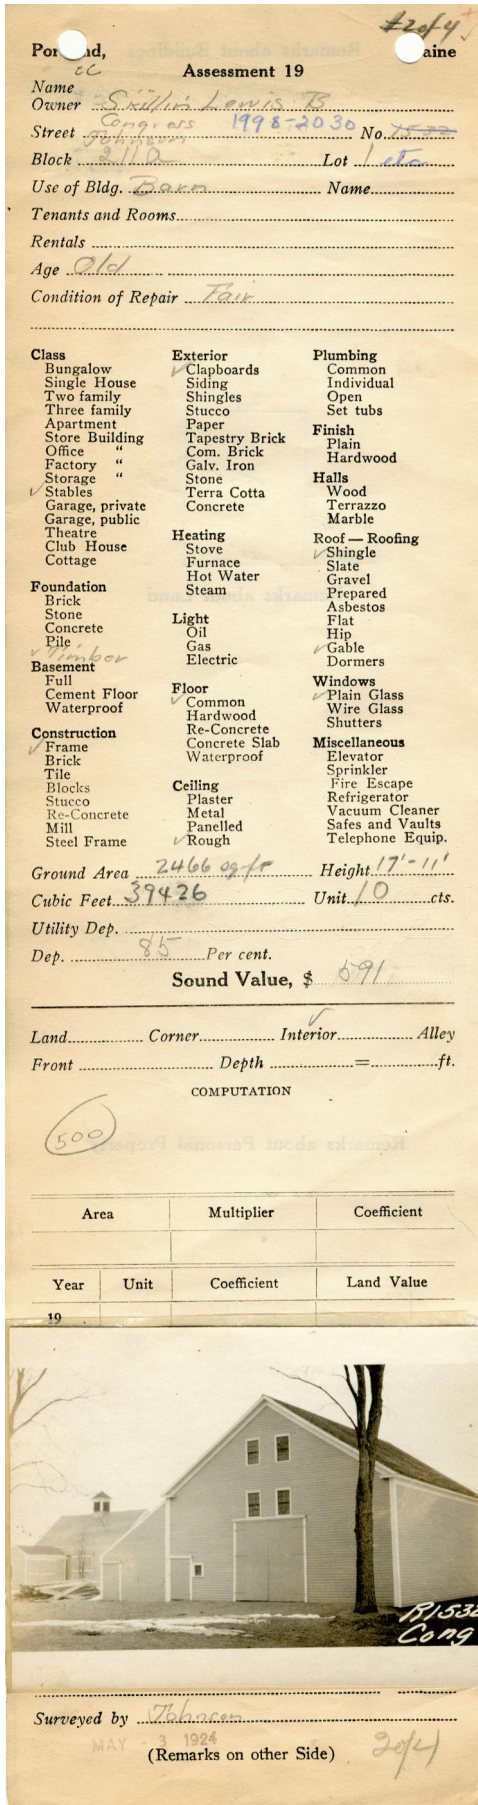 #2 of 4
Portland, Maine
Assessment 19
Name
Owner Skillin Lewis B
Congress
Street Johnson 1998-2030 No. 1532
Block 211A Lot 1 etc
Use of Bldg. Barn Name
Tenants and Rooms
Rentals
Age Old
Condition of Repair Fair
Class
Bungalow
Single House
Two family
Three family
Apartment
Store Building
Office "
Factory "
Storage "
✓ Stables
Garage, private
Garage, public
Theatre
Club House
Cottage
Foundation
Brick
Stone
Concrete
Pile
✓ Timber
Basement
Full
Cement Floor
Waterproof
Construction
✓ Frame
Brick
Tile
Blocks
Stucco
Re-Concrete
Mill
Steel Frame
Exterior
✓ Clapboards
Siding
Shingles
Stucco
Paper
Tapestry Brick
Com. Brick
Galv. Iron
Stone
Terra Cotta
Concrete
Heating
Stove
Furnace
Hot Water
Steam
Light
Oil
Gas
Electric
Floor
✓ Common
Hardwood
Re-Concrete
Concrete Slab
Waterproof
Ceiling
Plaster
Metal
Panelled
✓ Rough
Plumbing
Common
Individual
Open
Set tubs
Finish
Plain
Hardwood
Halls
Wood
Terrazzo
Marble
Roof — Roofing
✓ Shingle
Slate
Gravel
Prepared
Asbestos
Flat
Hip
✓ Gable
Dormers
Windows
✓ Plain Glass
Wire Glass
Shutters
Miscellaneous
Elevator
Sprinkler
Fire Escape
Refrigerator
Vacuum Cleaner
Safes and Vaults
Telephone Equip.
Ground Area 2466 sq ft Height 17'-11'
Cubic Feet 39426 Unit 10 cts.
Utility Dep.
Dep. 85 Per cent.
Sound Value, $ 591
Land Corner Interior ✓ Alley
Front Depth = ft.
COMPUTATION
500
Area Multiplier Coefficient
Year Unit Coefficient Land Value
19
R1532
Cong
Surveyed by Johnson
MAY - 3 1924
(Remarks on other Side) 2of4